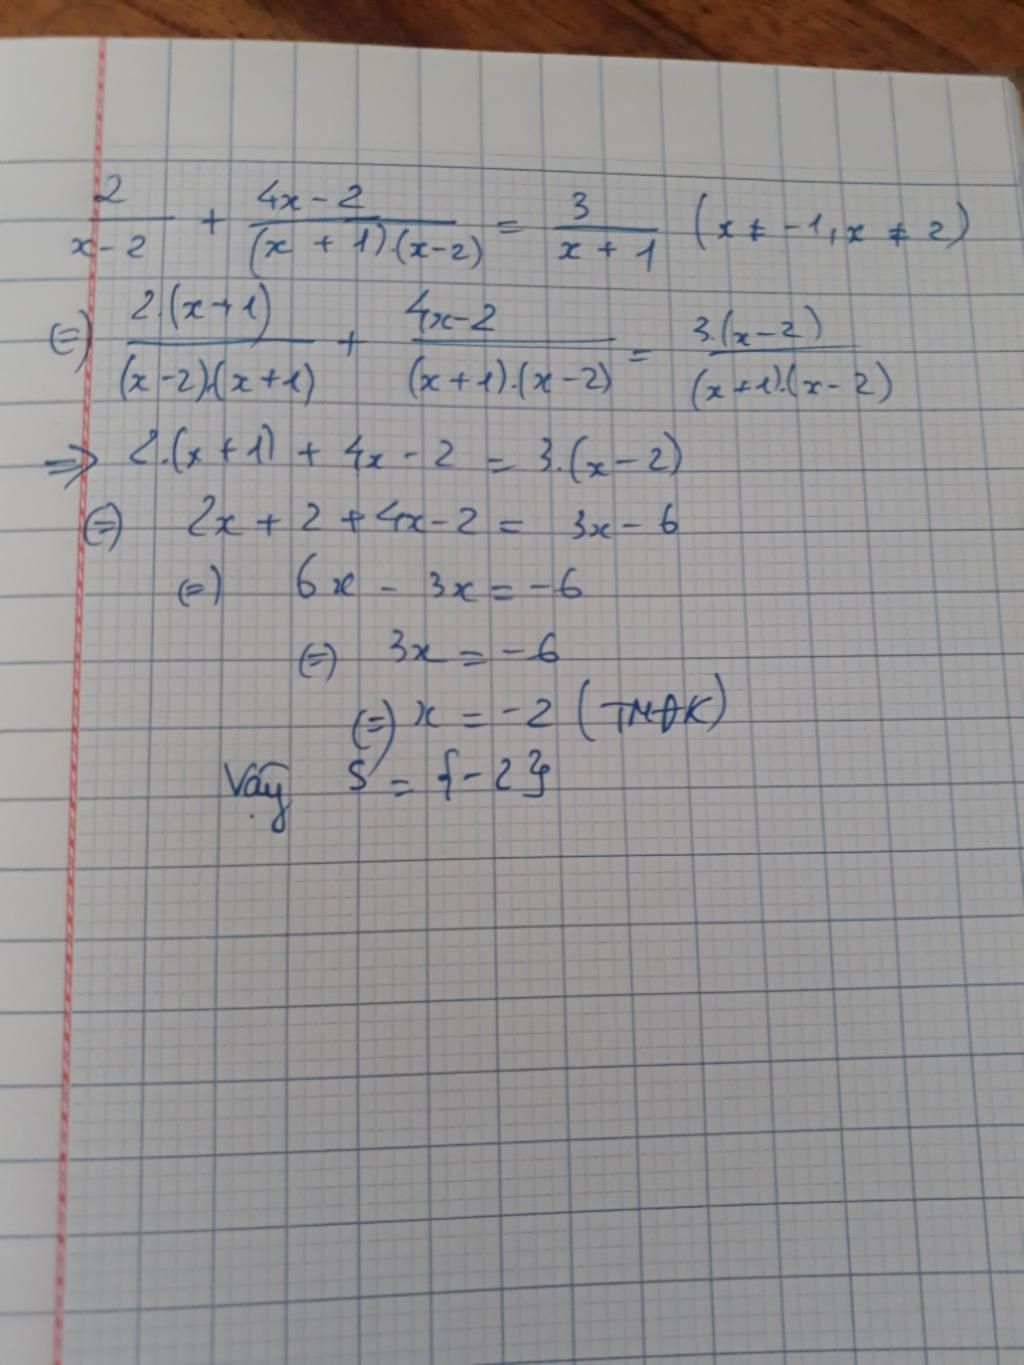 2/(x-2) + (4x-2)/((x+1).(x-2)) = 3/(x+1) (x ≠ -1, x ≠ 2)
(=) 2.(x+1)/((x-2).(x+1)) + (4x-2)/((x+1).(x-2)) = 3.(x-2)/((x+1).(x-2))
=> 2.(x+1) + 4x - 2 = 3.(x-2)
(=) 2x + 2 + 4x - 2 = 3x - 6
(=) 6x - 3x = -6
(=) 3x = -6
(=) x = -2 (TMĐK)
Vậy S = {-2}